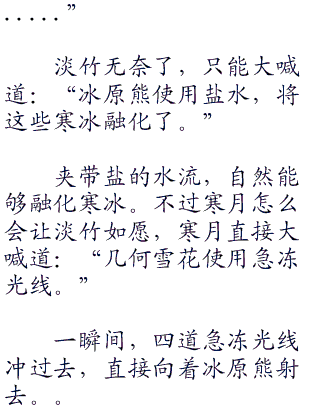 .....”
淡竹无奈了，只能大喊
道：“冰原熊使用盐水，将
这些寒冰融化了。”
夹带盐的水流，自然能
够融化寒冰。不过寒月怎么
会让淡竹如愿，寒月直接大
喊道：“几何雪花使用急冻
光线。”
一瞬间，四道急冻光线
冲过去，直接向着冰原熊射
去。。